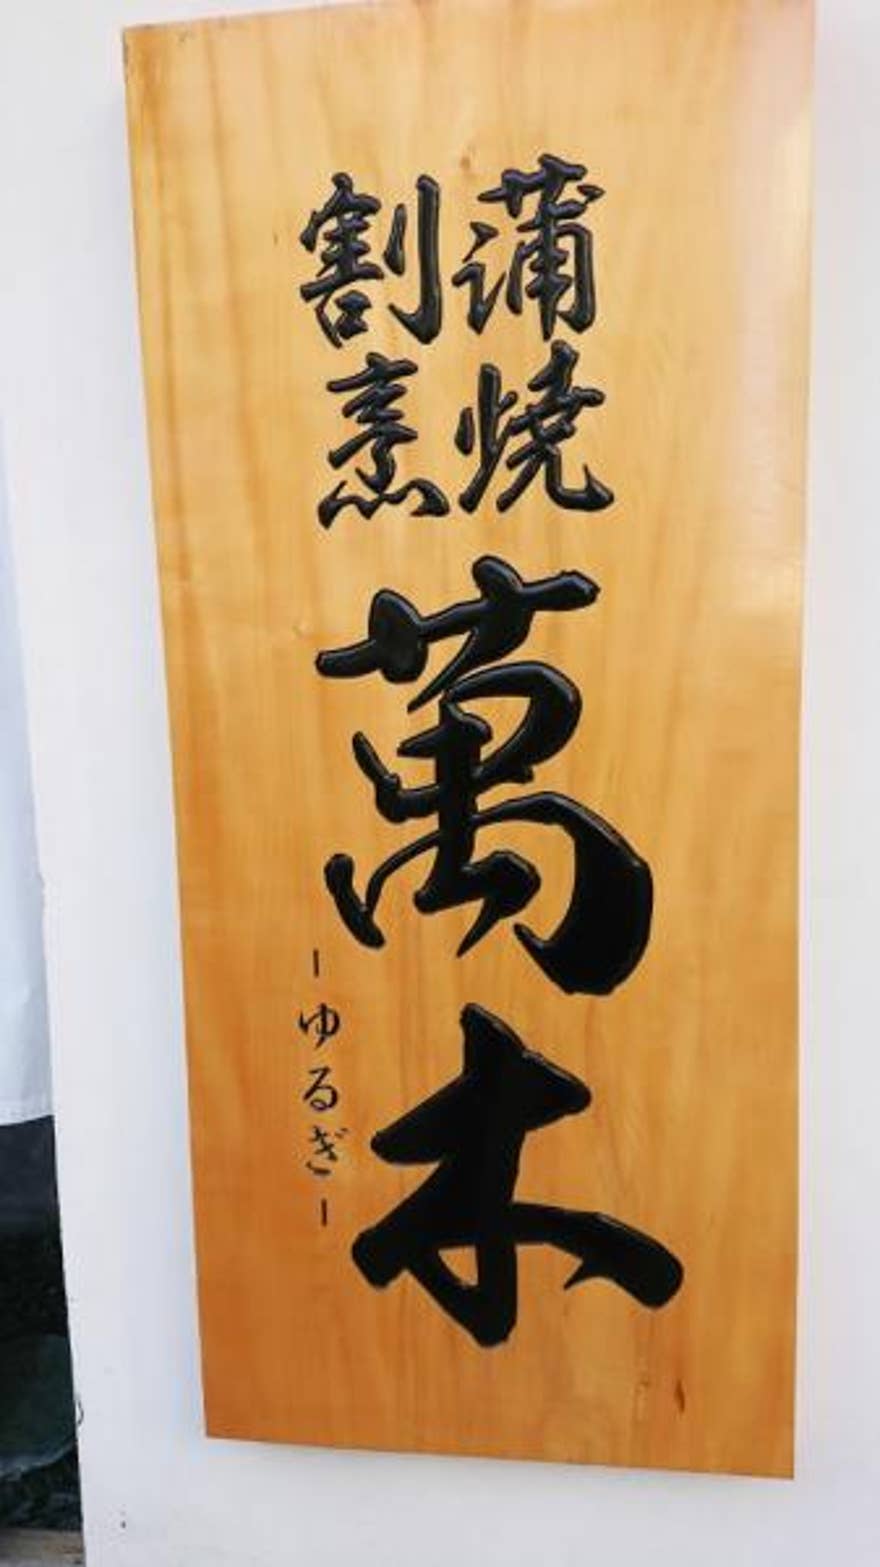 蒲焼
割烹
萬木
-ゆるぎ-